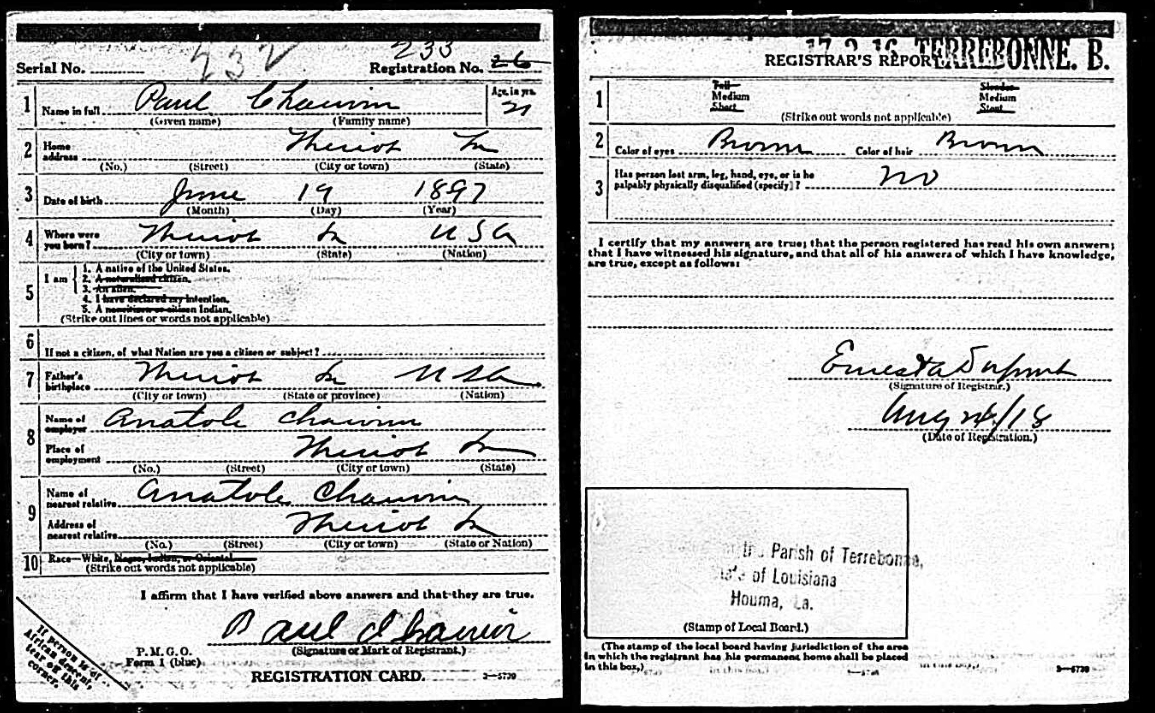 232
Serial No.
233
Registration No. 26
1 Name in full Paul Chauvin
Age, in yrs. 21
(Given name) (Family name)
2 Home address Theriot La
(No.) (Street) (City or town) (State)
3 Date of birth June 19 1897
(Month) (Day) (Year)
4 Where were you born? Theriot La USA
(City or town) (State) (Nation)
5 I am
1. A native of the United States.
2. A naturalized citizen.
3. An alien.
4. I have declared my intention.
5. A noncitizen or citizen Indian.
(Strike out lines or words not applicable)
6 If not a citizen, of what Nation are you a citizen or subject?
7 Father's birthplace Theriot La USA
(City or town) (State or province) (Nation)
8 Name of employer Anatole Chauvin
Place of employment Theriot La
(No.) (Street) (City or town) (State)
9 Name of nearest relative Anatole Chauvin
Address of nearest relative Theriot La
(No.) (Street) (City or town) (State or Nation)
10 Race—White, Negro, Indian, or Oriental
(Strike out words not applicable)
I affirm that I have verified above answers and that they are true.
Paul Chauvin
(Signature or Mark of Registrant.)
P. M. G. O.
Form 1 (blue)
REGISTRATION CARD.
If person is of
African descent,
tear off this
corner.
17-2-16 TERREBONNE. B.
REGISTRAR'S REPORT
1 Tall Slender
Medium Medium
Short Stout
(Strike out words not applicable)
2 Color of eyes Brown Color of hair Brown
3 Has person lost arm, leg, hand, eye, or is he
palpably physically disqualified (specify)? no
I certify that my answers are true; that the person registered has read his own answers;
that I have witnessed his signature, and that all of his answers of which I have knowledge,
are true, except as follows:
(Signature of Registrar.)
Aug 24/18
(Date of Registration.)
Parish of Terrebonne,
of Louisiana
Houma, La.
(Stamp of Local Board.)
(The stamp of the local board having jurisdiction of the area
in which the registrant has his permanent home shall be placed
in this box.)